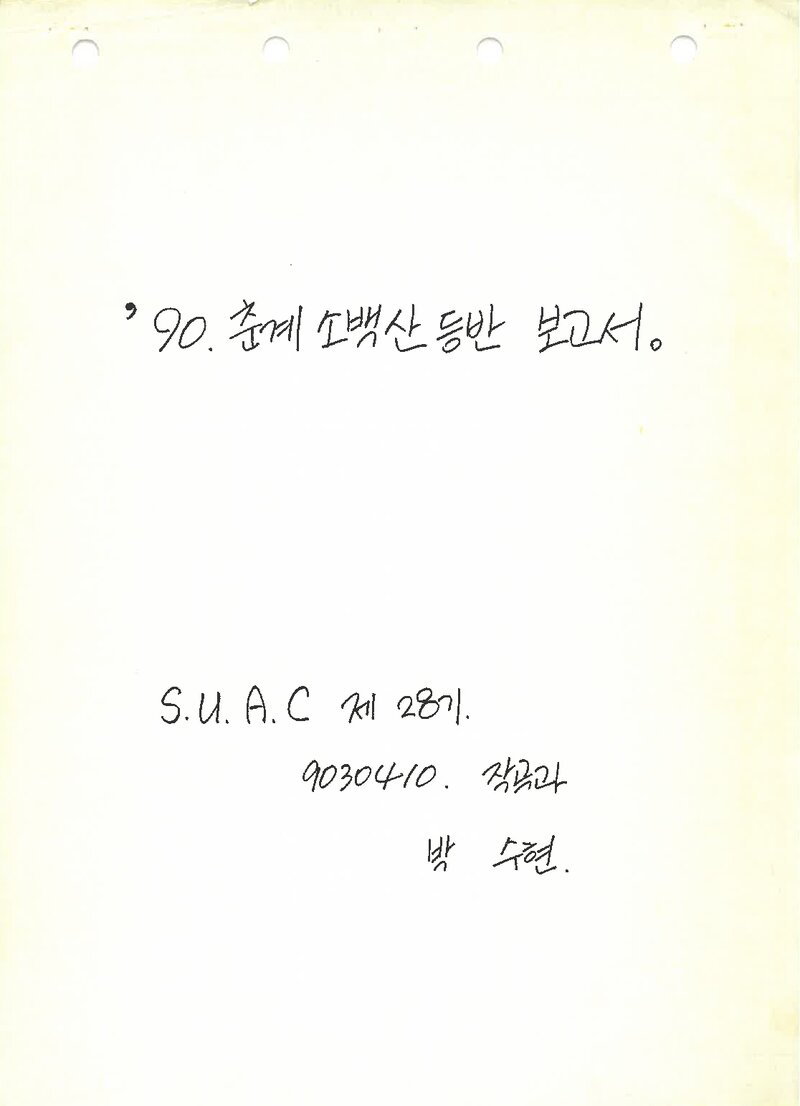 '90. 춘계 소백산 등반 보고서。
S.U.A.C 제 28기.
9030410. 작곡과
박 수현.